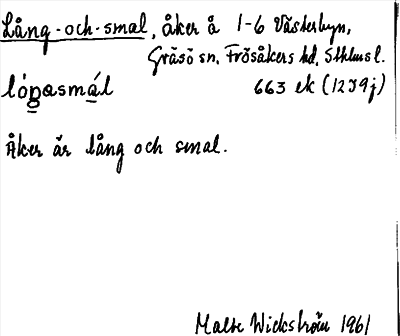 Lång-och-smal, åker å 1-6 Västerbyn,
Gräsö sn, Frösåkers hd, Sthlms l.
lóŋasmál 663 ek (12J9j)
Åker är lång och smal.
Malte Wickström 1961